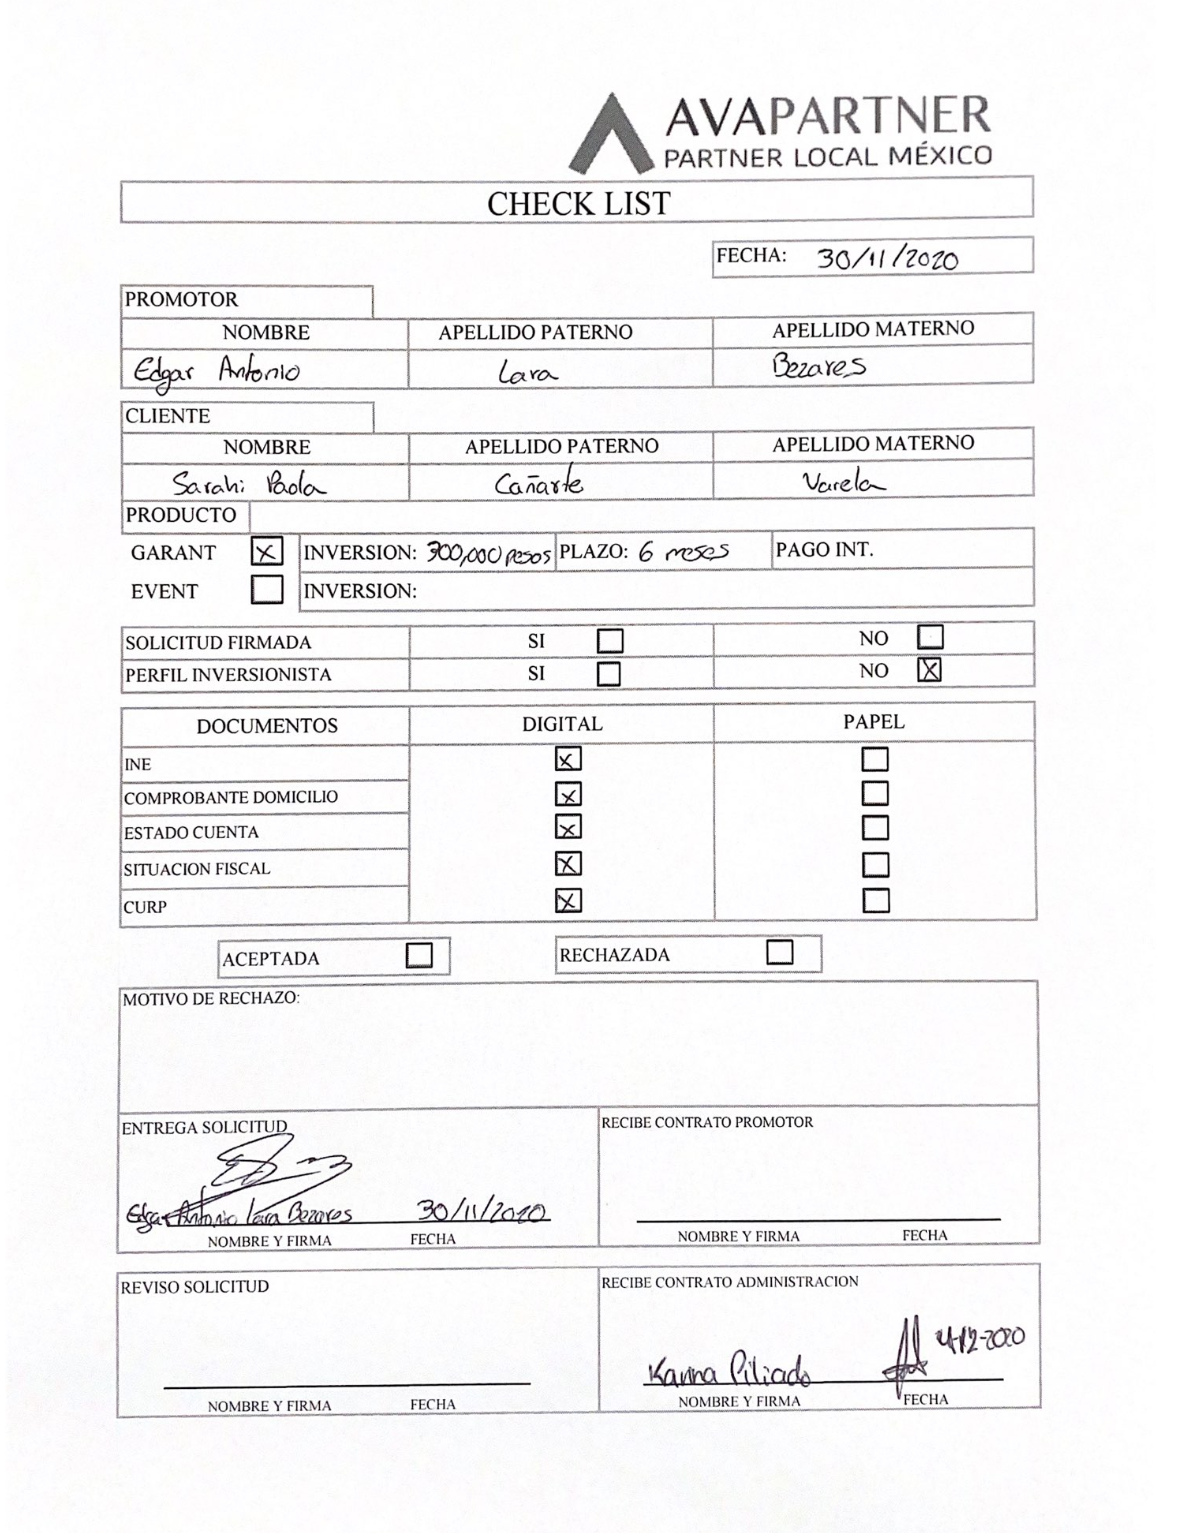 AVAPARTNER
PARTNER LOCAL MÉXICO
CHECK LIST
FECHA: 30/11/2020
PROMOTOR
NOMBRE APELLIDO PATERNO APELLIDO MATERNO
Edgar Antonio Lara Bezares
CLIENTE
NOMBRE APELLIDO PATERNO APELLIDO MATERNO
Sarahi Paola Cañarte Varela
PRODUCTO
GARANT INVERSION: 300,000 pesos PLAZO: 6 meses PAGO INT.
EVENT INVERSION:
SOLICITUD FIRMADA SI NO
PERFIL INVERSIONISTA SI NO
DOCUMENTOS DIGITAL PAPEL
INE
COMPROBANTE DOMICILIO
ESTADO CUENTA
SITUACION FISCAL
CURP
ACEPTADA RECHAZADA
MOTIVO DE RECHAZO:
ENTREGA SOLICITUD RECIBE CONTRATO PROMOTOR
Edgar Antonio Lara Bezares 30/11/2020
NOMBRE Y FIRMA FECHA NOMBRE Y FIRMA FECHA
REVISO SOLICITUD RECIBE CONTRATO ADMINISTRACION
Karina Piliado 4-12-2020
NOMBRE Y FIRMA FECHA NOMBRE Y FIRMA FECHA